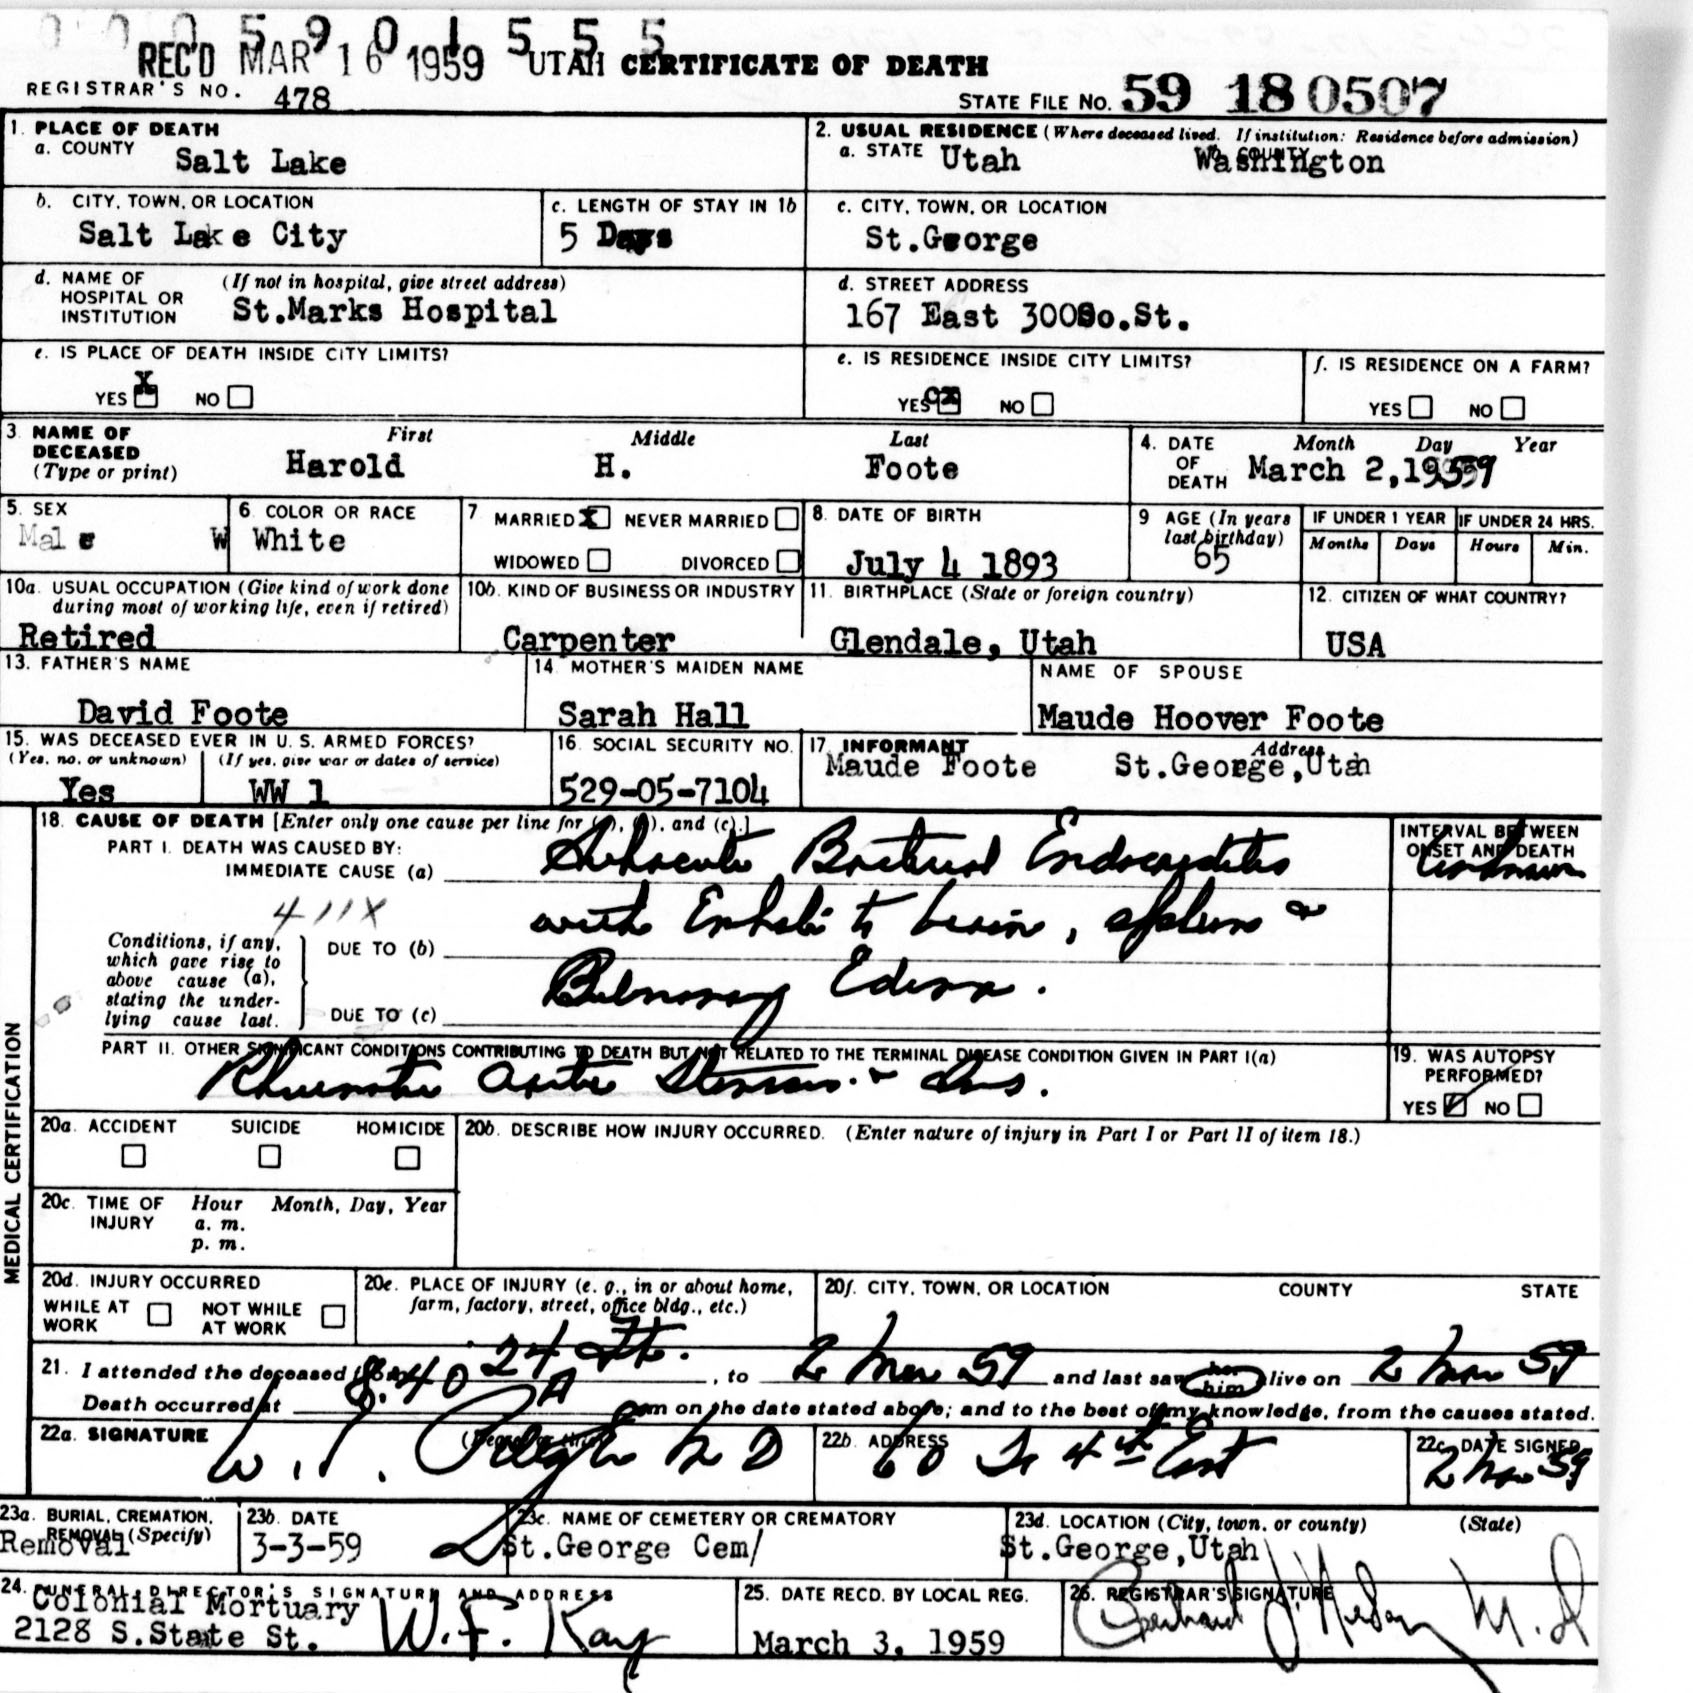 0 0 0 5 9 0 1 5 5 5
REC'D MAR 16 1959 UTAH CERTIFICATE OF DEATH
REGISTRAR'S NO. 478
STATE FILE NO. 59 18 0507
1. PLACE OF DEATH
a. COUNTY Salt Lake
2. USUAL RESIDENCE (Where deceased lived. If institution: Residence before admission)
a. STATE Utah b. COUNTY Washington
b. CITY, TOWN, OR LOCATION
Salt Lake City
c. LENGTH OF STAY IN 1b
5 Days
c. CITY, TOWN, OR LOCATION
St.George
d. NAME OF HOSPITAL OR INSTITUTION (If not in hospital, give street address)
St.Marks Hospital
d. STREET ADDRESS
167 East 300So.St.
e. IS PLACE OF DEATH INSIDE CITY LIMITS?
YES X NO
e. IS RESIDENCE INSIDE CITY LIMITS?
YES X NO
f. IS RESIDENCE ON A FARM?
YES NO
3. NAME OF DECEASED (Type or print)
First Middle Last
Harold H. Foote
4. DATE OF DEATH Month Day Year
March 2,1959
5. SEX
Male
6. COLOR OR RACE
W White
7. MARRIED X NEVER MARRIED
WIDOWED DIVORCED
8. DATE OF BIRTH
July 4 1893
9. AGE (In years last birthday)
65
IF UNDER 1 YEAR
Months Days
IF UNDER 24 HRS.
Hours Min.
10a. USUAL OCCUPATION (Give kind of work done during most of working life, even if retired)
Retired
10b. KIND OF BUSINESS OR INDUSTRY
Carpenter
11. BIRTHPLACE (State or foreign country)
Glendale, Utah
12. CITIZEN OF WHAT COUNTRY?
USA
13. FATHER'S NAME
David Foote
14. MOTHER'S MAIDEN NAME
Sarah Hall
NAME OF SPOUSE
Maude Hoover Foote
15. WAS DECEASED EVER IN U. S. ARMED FORCES?
(Yes, no, or unknown) (If yes, give war or dates of service)
Yes WW 1
16. SOCIAL SECURITY NO.
529-05-7104
17. INFORMANT Address
Maude Foote St.George,Utah
MEDICAL CERTIFICATION
18. CAUSE OF DEATH [Enter only one cause per line for (a), (b), and (c).]
PART I. DEATH WAS CAUSED BY:
IMMEDIATE CAUSE (a) Subacute Bacterial Endocarditis
INTERVAL BETWEEN ONSET AND DEATH
Unknown
411X
Conditions, if any, which gave rise to above cause (a), stating the underlying cause last.
DUE TO (b) with Emboli to brain, spleen &
DUE TO (c) Pulmonary Edema.
PART II. OTHER SIGNIFICANT CONDITIONS CONTRIBUTING TO DEATH BUT NOT RELATED TO THE TERMINAL DISEASE CONDITION GIVEN IN PART I(a)
Rheumatic Aortic Stenosis &
19. WAS AUTOPSY PERFORMED?
YES ✓ NO
20a. ACCIDENT SUICIDE HOMICIDE
20b. DESCRIBE HOW INJURY OCCURRED. (Enter nature of injury in Part I or Part II of item 18.)
20c. TIME OF INJURY Hour Month, Day, Year
a. m.
p. m.
20d. INJURY OCCURRED
WHILE AT WORK NOT WHILE AT WORK
20e. PLACE OF INJURY (e. g., in or about home, farm, factory, street, office bldg., etc.)
20f. CITY, TOWN, OR LOCATION COUNTY STATE
21. I attended the deceased from 24 Feb. , to 2 Mar 59 and last saw her him alive on 2 Mar 59
Death occurred at 8:40 A m on the date stated above; and to the best of my knowledge, from the causes stated.
22a. SIGNATURE (Degree or title)
W. M D
22b. ADDRESS
60 So 4th East
22c. DATE SIGNED
2 Mar 59
23a. BURIAL, CREMATION, REMOVAL (Specify)
Removal
23b. DATE
3-3-59
23c. NAME OF CEMETERY OR CREMATORY
St.George Cem/
23d. LOCATION (City, town, or county) (State)
St.George,Utah
24. FUNERAL DIRECTOR'S SIGNATURE AND ADDRESS
Colonial Mortuary
2128 S.State St. W.F. Kay
25. DATE RECD. BY LOCAL REG.
March 3, 1959
26. REGISTRAR'S SIGNATURE
M.D